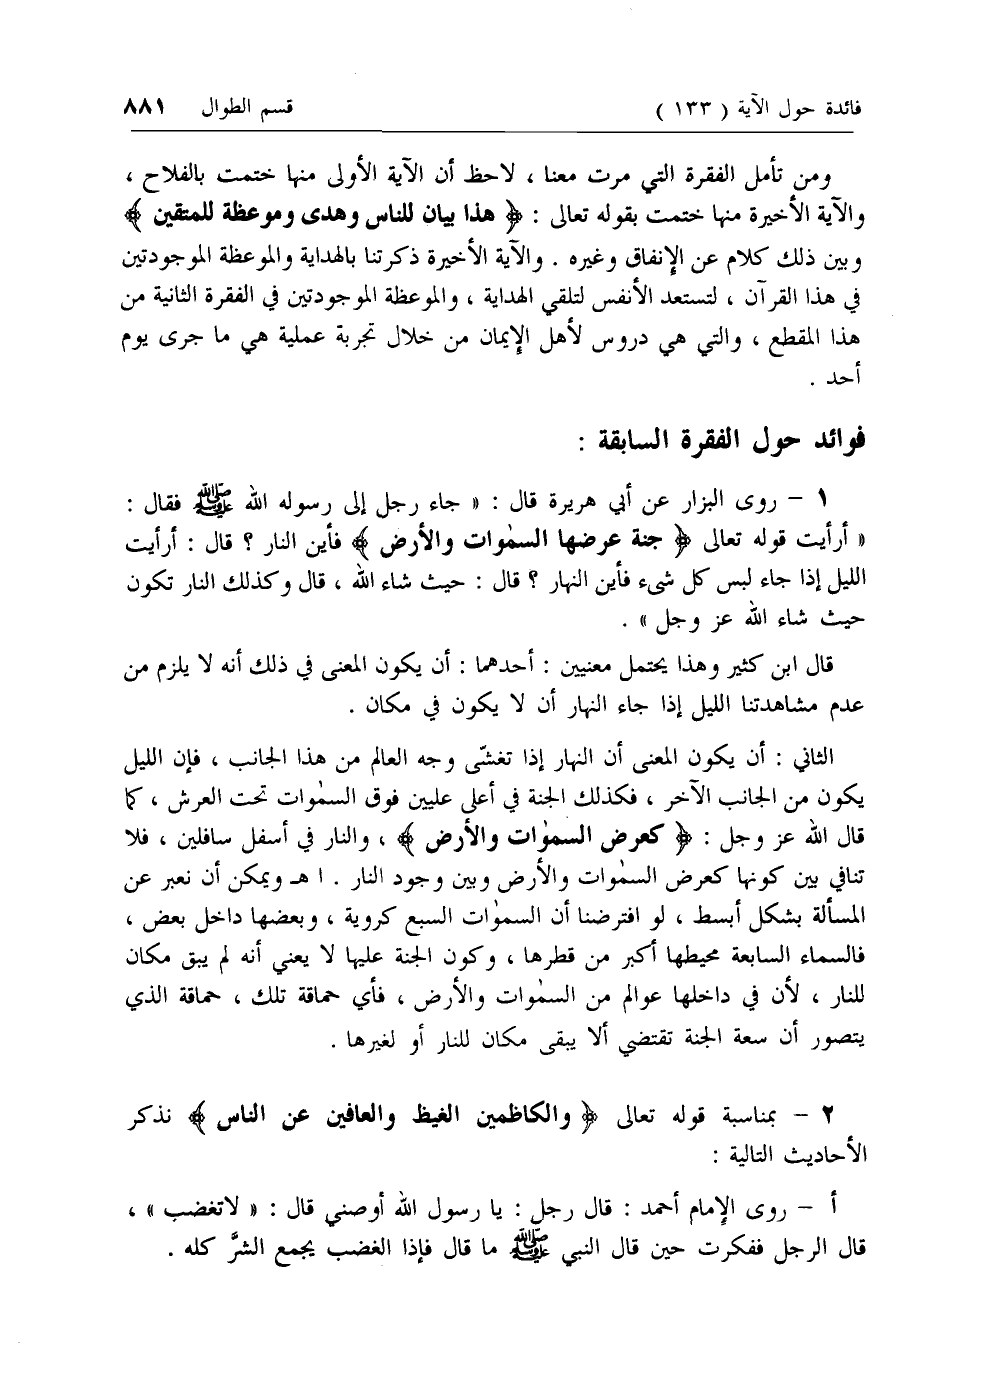 فائدة حول الآية ( ١٣٣ ) قسم الطوال ٨٨١
ومن تأمل الفقرة التي مرت معنا ، لاحظ أن الآية الأولى منها ختمت بالفلاح ،
والآية الأخيرة منها ختمت بقوله تعالى : ﴿ هذا بيان للناس وهدى وموعظة للمتقين ﴾
وبين ذلك كلام عن الإنفاق وغيره . والآية الأخيرة ذكرتنا بالهداية والموعظة الموجودتين
في هذا القرآن ، لتستعد الأنفس لتلقي الهداية ، والموعظة الموجودتين في الفقرة الثانية من
هذا المقطع ، والتي هي دروس لأهل الإيمان من خلال تجربة عملية هي ما جرى يوم
أحد .
فوائد حول الفقرة السابقة :
١ – روى البزار عن أبي هريرة قال : « جاء رجل إلى رسوله الله ﷺ فقال :
« أرأيت قوله تعالى ﴿ جنة عرضها السمٰوات والأرض ﴾ فأين النار ؟ قال : أرأيت
الليل إذا جاء لبس كل شىء فأين النهار ؟ قال : حيث شاء الله ، قال وكذلك النار تكون
حيث شاء الله عز وجل » .
قال ابن كثير وهذا يحتمل معنيين : أحدهما : أن يكون المعنى في ذلك أنه لا يلزم من
عدم مشاهدتنا الليل إذا جاء النهار أن لا يكون في مكان .
الثاني : أن يكون المعنى أن النهار إذا تغشّى وجه العالم من هذا الجانب ، فإن الليل
يكون من الجانب الآخر ، فكذلك الجنة في أعلى عليين فوق السمٰوات تحت العرش ، كما
قال الله عز وجل : ﴿ كعرض السموٰات والأرض ﴾ ، والنار في أسفل سافلين ، فلا
تنافي بين كونها كعرض السمٰوات والأرض وبين وجود النار . ا هـ ويمكن أن نعبر عن
المسألة بشكل أبسط ، لو افترضنا أن السموٰات السبع كروية ، وبعضها داخل بعض ،
فالسماء السابعة محيطها أكبر من قطرها ، وكون الجنة عليها لا يعني أنه لم يبق مكان
للنار ، لأن في داخلها عوالم من السمٰوات والأرض ، فأي حماقة تلك ، حماقة الذي
يتصور أن سعة الجنة تقتضي ألا يبقى مكان للنار أو لغيرها .
٢ – بمناسبة قوله تعالى ﴿ والكاظمين الغيظ والعافين عن الناس ﴾ نذكر
الأحاديث التالية :
أ – روى الإمام أحمد : قال رجل : يا رسول الله أوصني قال : « لاتغضب » ،
قال الرجل ففكرت حين قال النبي ﷺ ما قال فإذا الغضب يجمع الشرَّ كله .